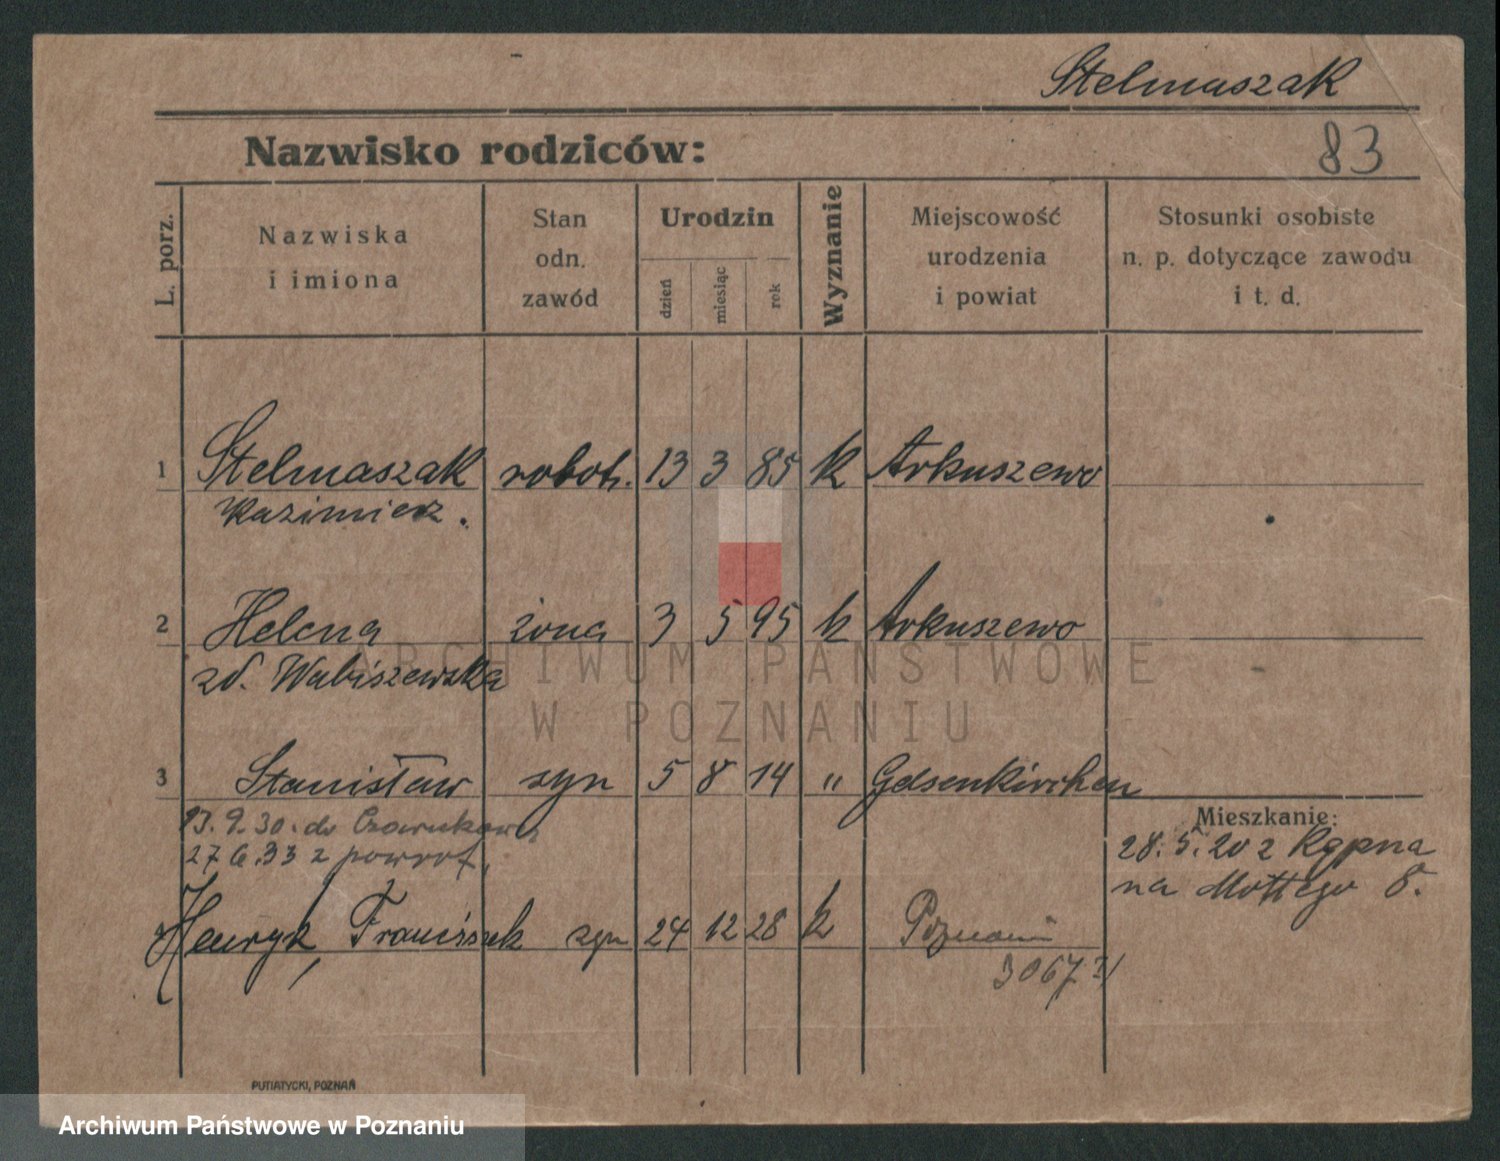 Stelmaszak
Nazwisko rodziców:
83
L. porz.
Nazwiska
i imiona
Stan
odn.
zawód
Urodzin
dzień
miesiąc
rok
Wyznanie
Miejscowość
urodzenia
i powiat
Stosunki osobiste
n. p. dotyczące zawodu
i t. d.
1 Stelmaszak robotn. 13 3 85 k Arkuszewo
Kazimierz.
2 Helena żona 3 5 95 k Arkuszewo
zd. Wabiszewska
ARCHIWUM PAŃSTWOWE
W POZNANIU
3 Stanisław syn 5 8 14 " Gelsenkirchen
Mieszkanie:
13.9.30. do
27 6.33 z powrot,
28.5.20 z Kępna
na Mottego 8.
Henryk, Franciszek syn 24 12 28 k Poznań
3067
PUTIATYCKI, POZNAŃ
Archiwum Państwowe w Poznaniu